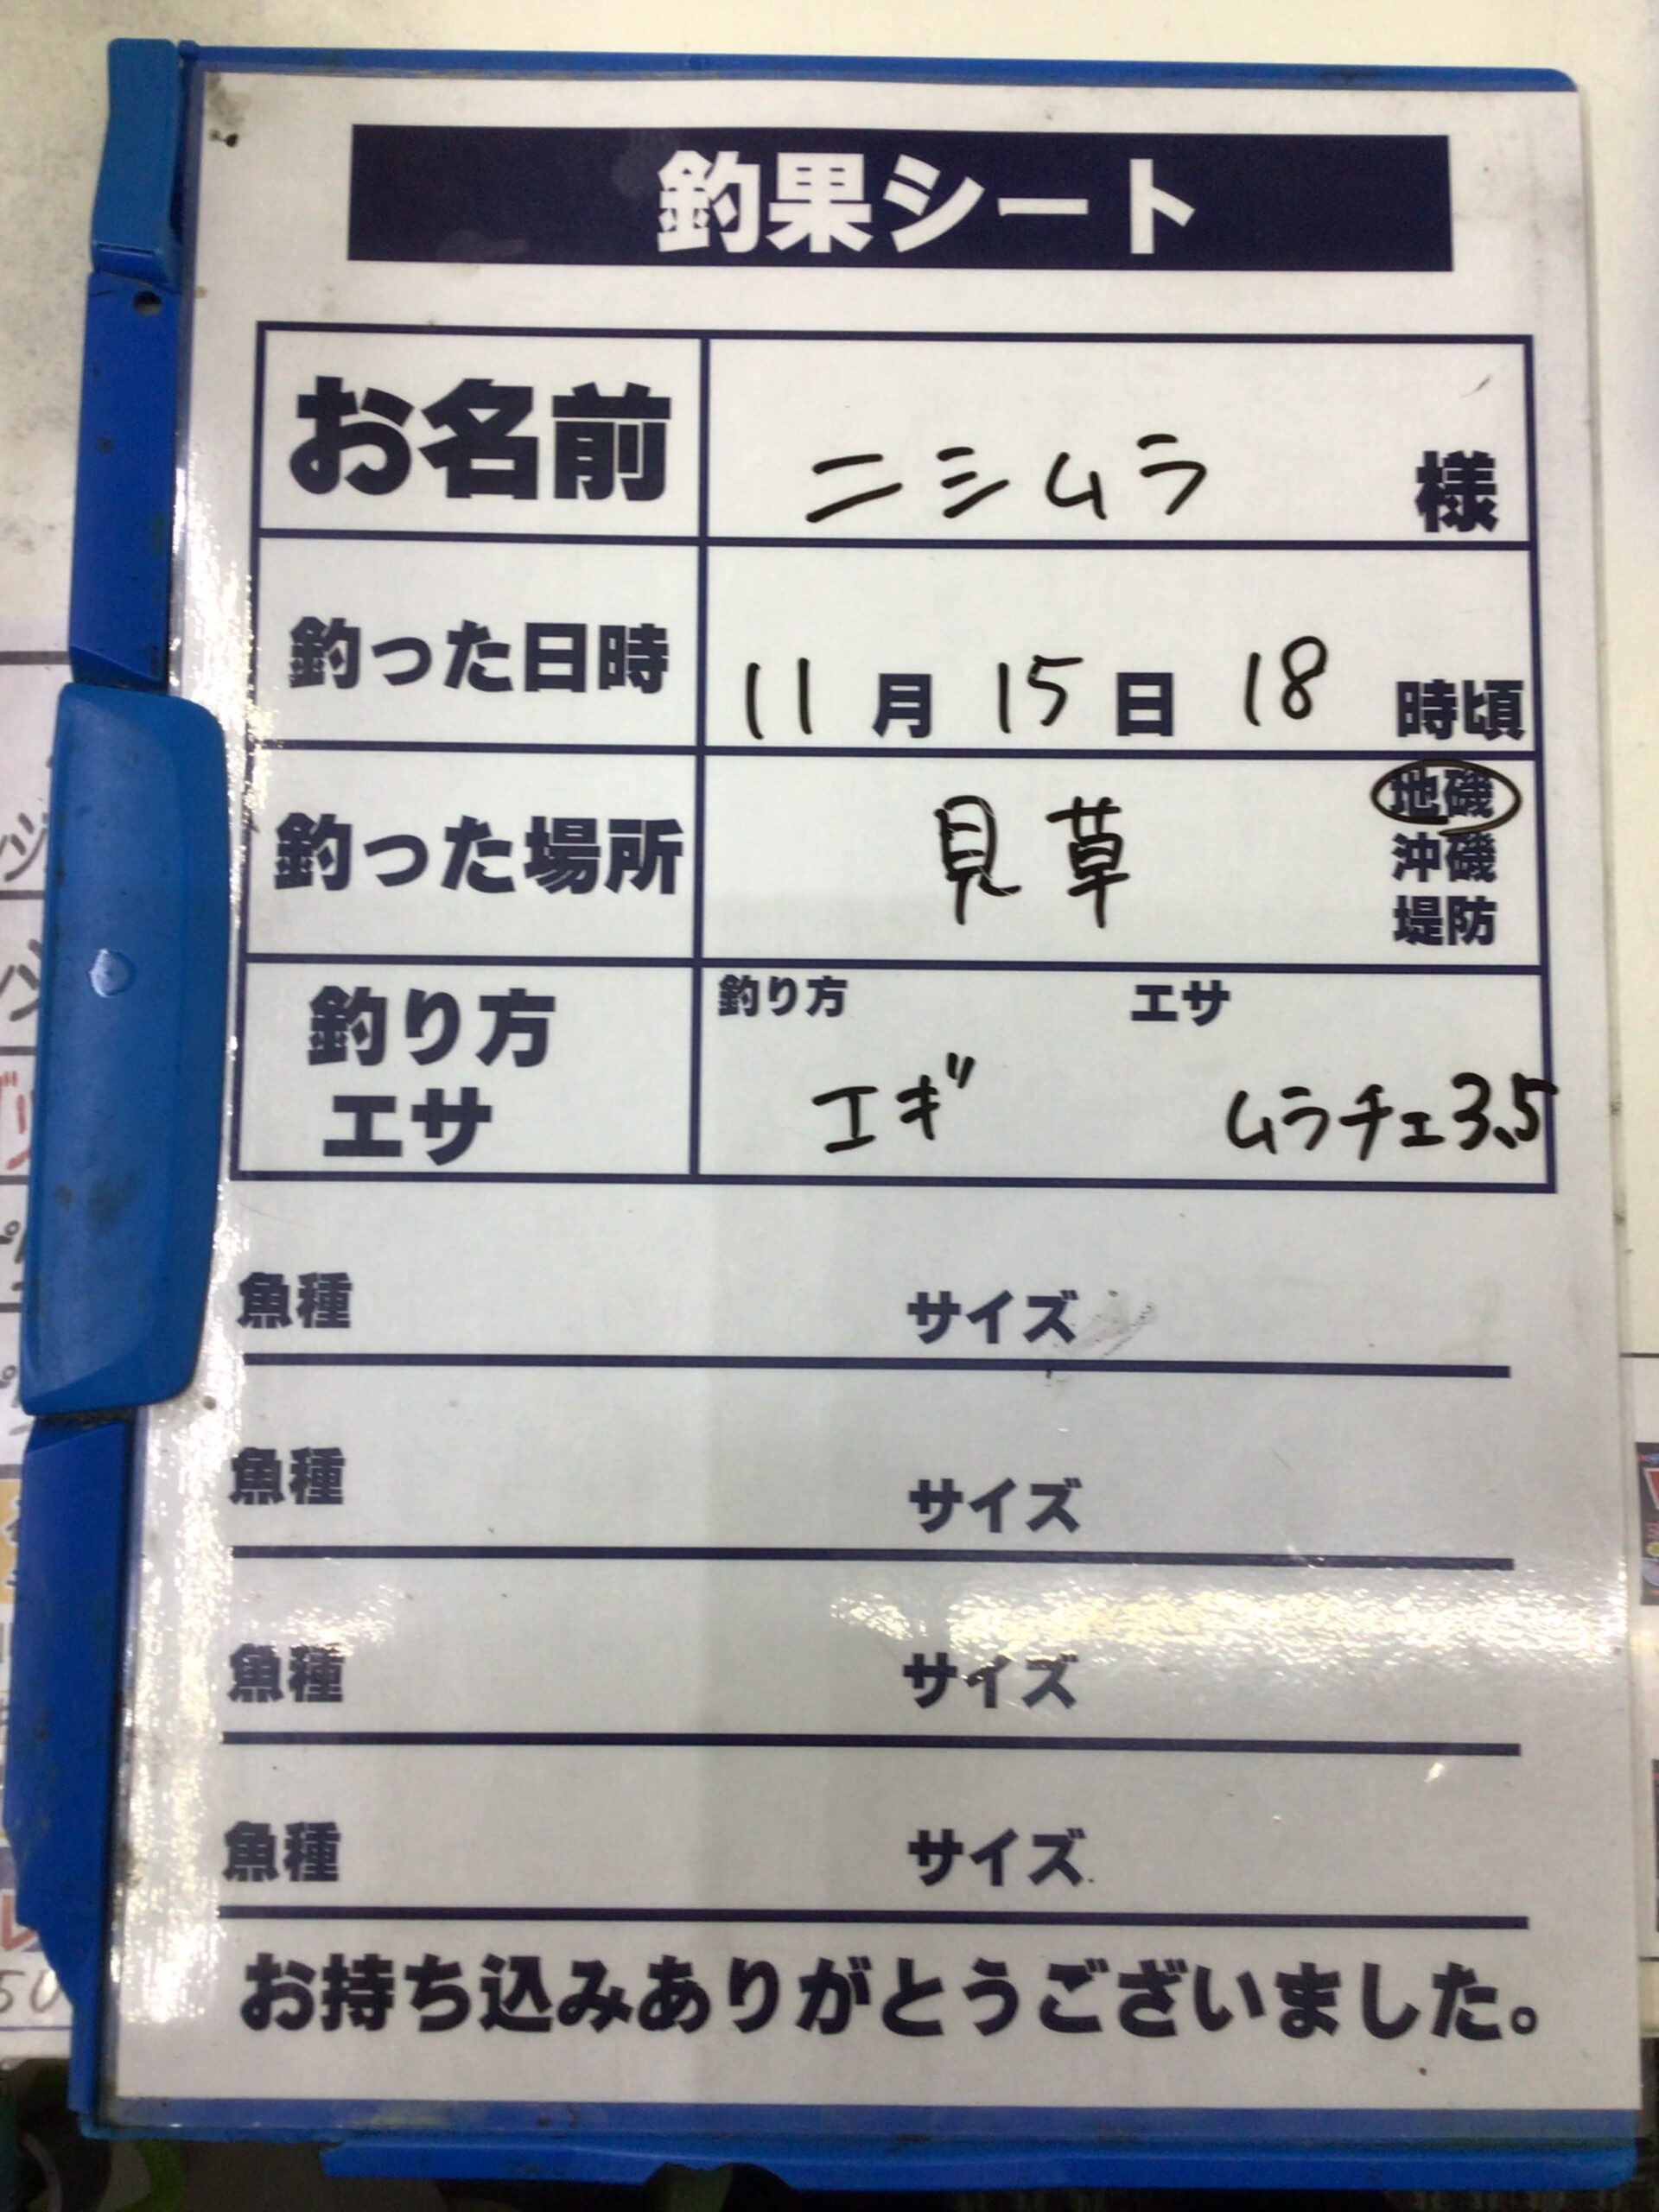 釣果シート
お名前 ニシムラ 様
釣った日時 11月15日18時頃
釣った場所 見草 地磯
沖磯
堤防
釣り方 エサ
釣り方 エサ
エギ ムラチェ3.5
魚種 サイズ
魚種 サイズ
魚種 サイズ
魚種 サイズ
お持ち込みありがとうございました。